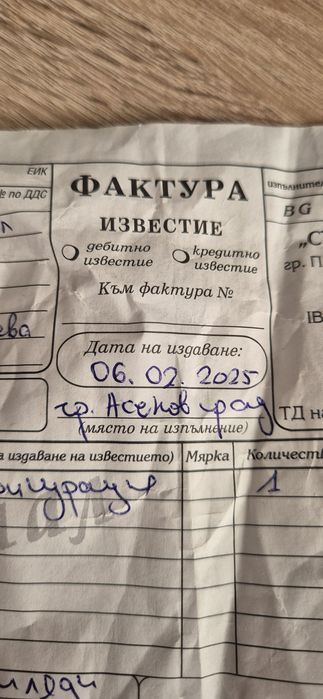 ЕИК
№ по ДДС
ФАКТУРА
изпълнител
BG
ИЗВЕСТИЕ
дебитно известие
кредитно известие
„С
гр. П
Към фактура №
IB
ева
Дата на издаване:
06.02.2025
гр. Асеновград
(място на изпълнение)
ТД на
а издаване на известието) Мярка Количеств
1